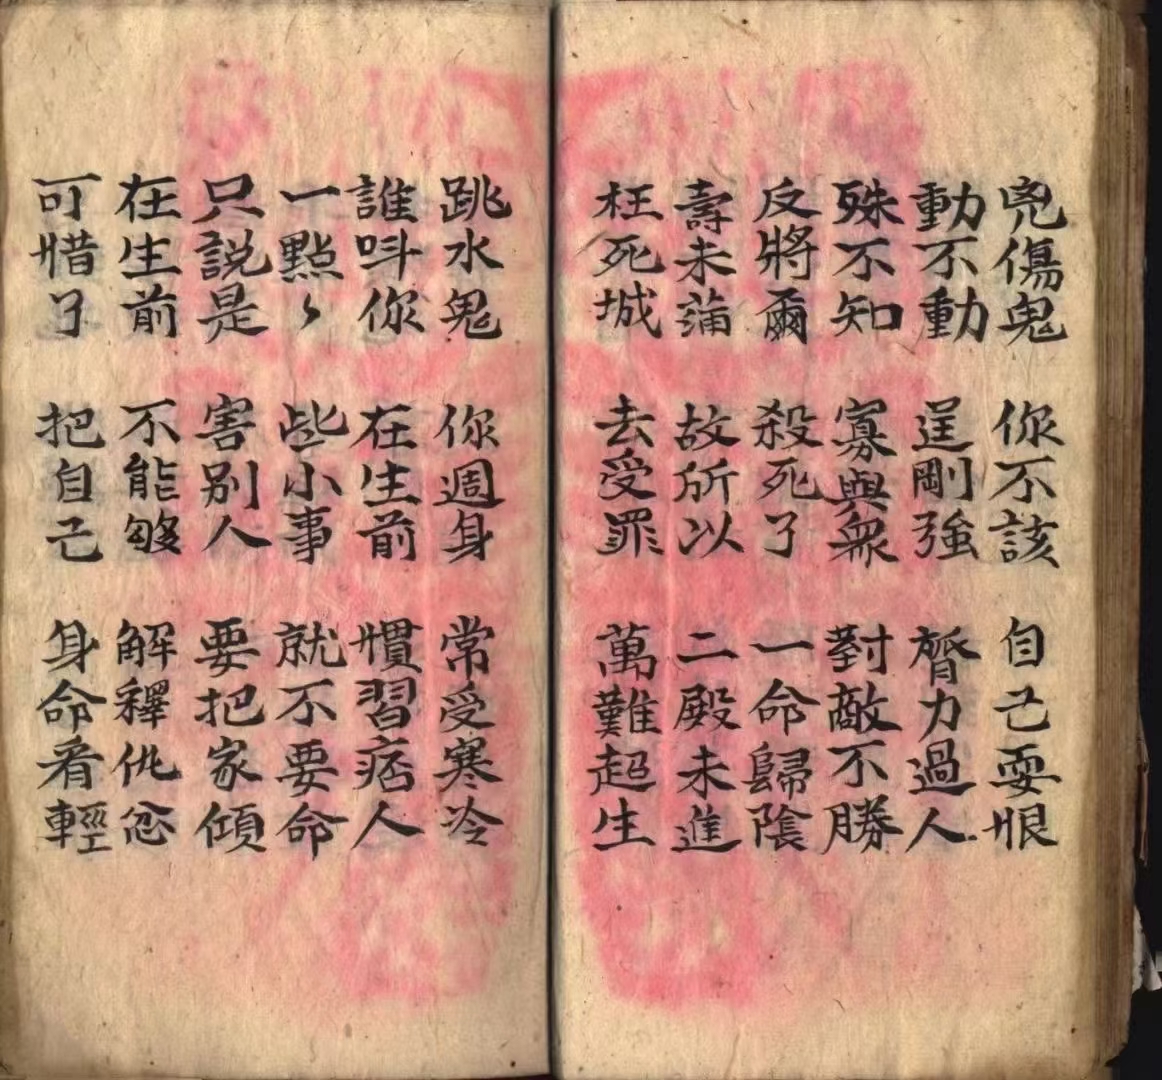 兇傷鬼 你不該 自己耍恨
動不動 逞剛強 膂力過人
殊不知 寡與衆 對敵不勝
反將爾 殺死了 一命歸陰
壽未蒲 故所以 二殿未進
枉死城 去受罪 萬難超生
跳水鬼 你週身 常受寒冷
誰呌你 在生前 慣習痞人
一點〻 些小事 就不要命
只説是 害別人 要把家傾
在生前 不能够 解釋仇忿
可惜了 把自己 身命看輕